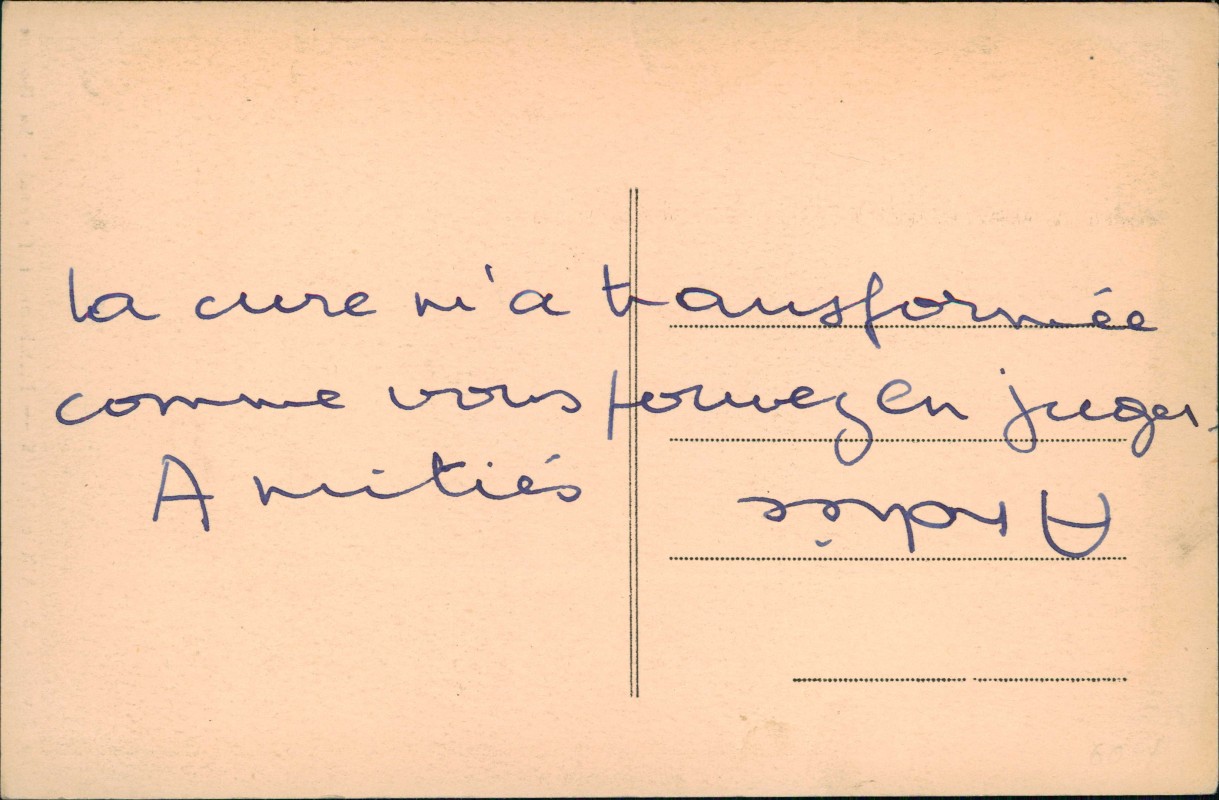 La cure m'a transformée
comme vous pouvez en juger.
Amitiés
Andrée